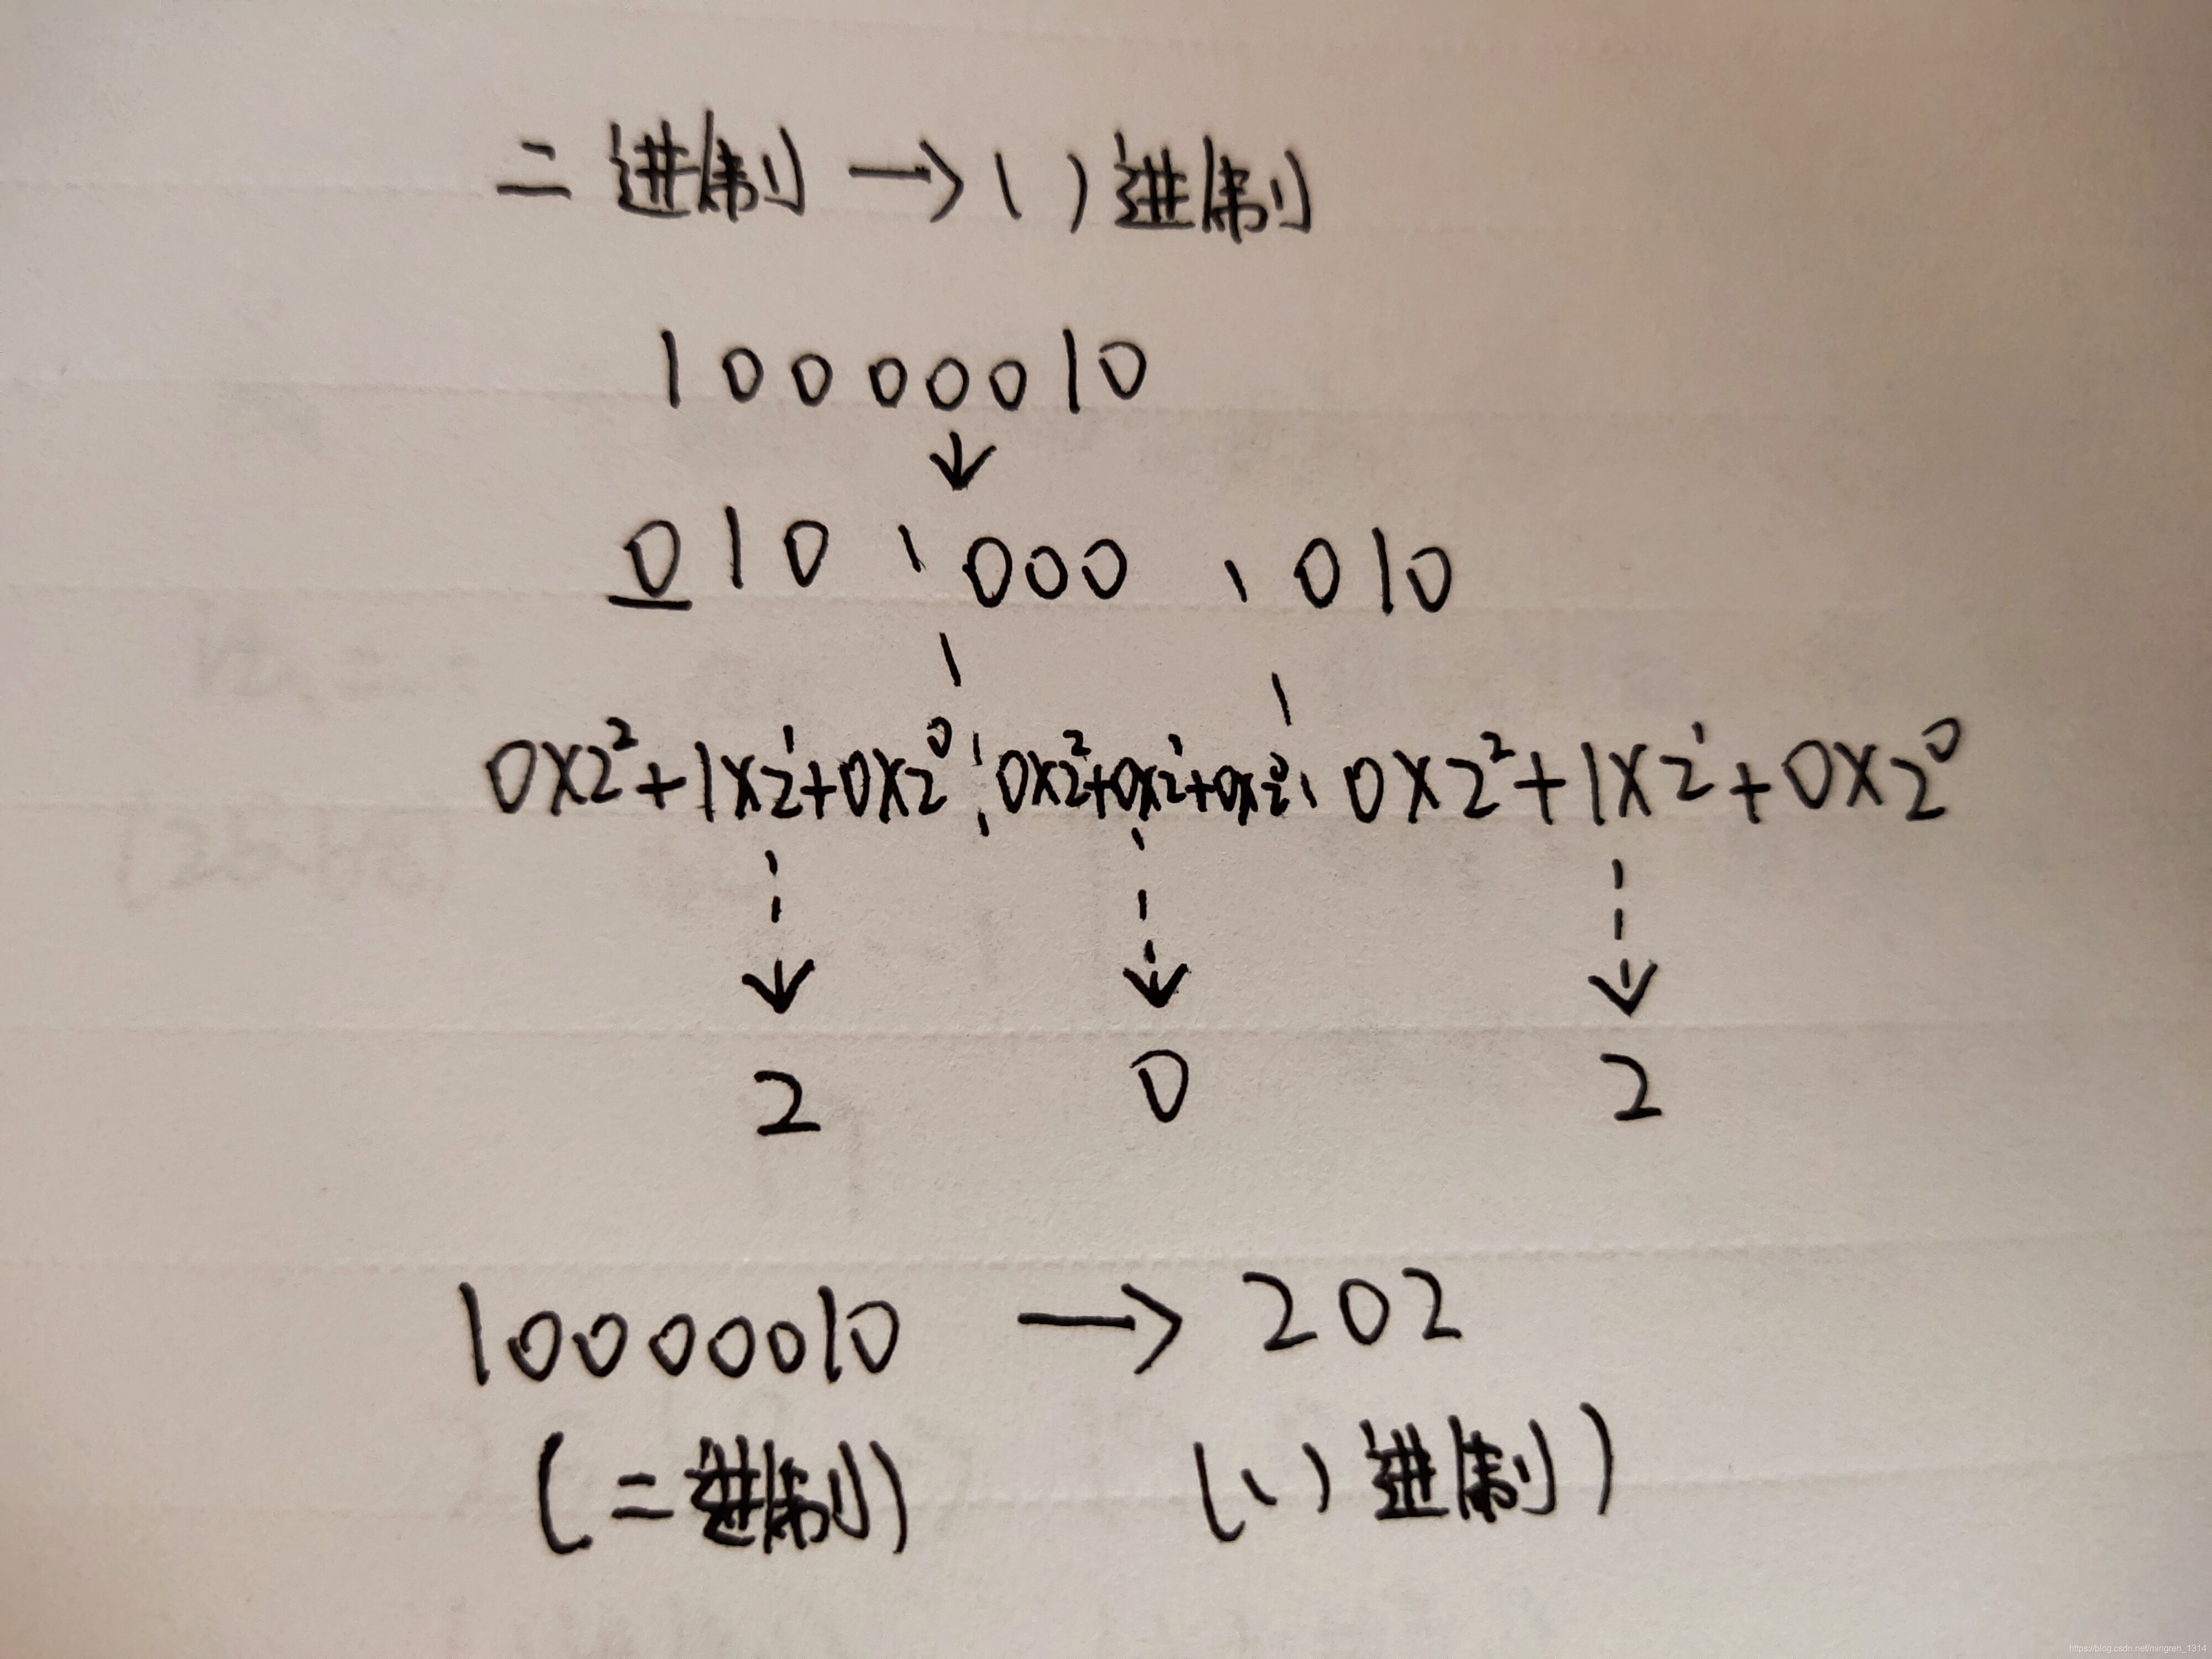 二进制 → 八进制
10000010
↓
010 000 010
0×2²+1×2¹+0×2⁰ 0×2²+0×2¹+0×2⁰ 0×2²+1×2¹+0×2⁰
2 0 2
10000010 → 202
(二进制) (八进制)
https://blog.csdn.net/mingren_1314